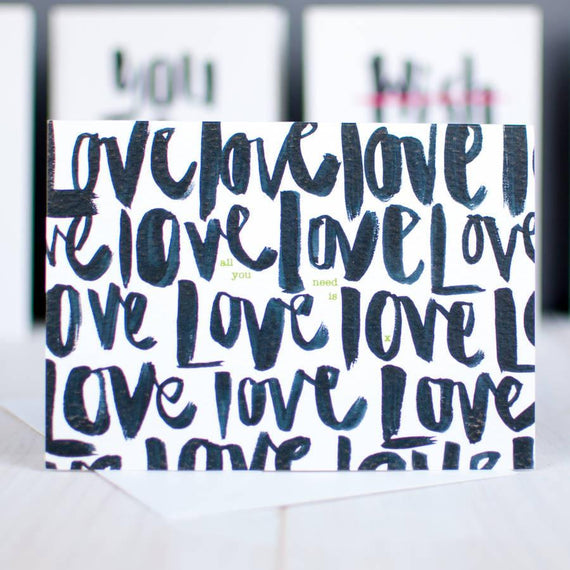 you
Wish
Love love love l
ve love love Love
love Love love Lo
all
you
need
is
x
Love love Love
love love love